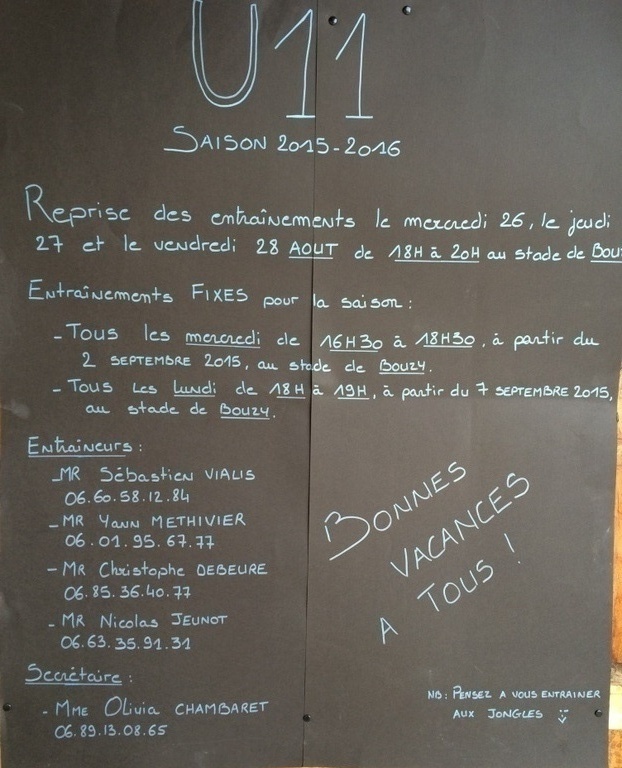 U11
SAISON 2015-2016
Reprise des entraînements le mercredi 26, le jeudi
27 et le vendredi 28 AOUT de 18H à 20H au stade de Bouz
Entraînements FIXES pour la saison :
- Tous les mercredi de 16H30 à 18H30, à partir du
2 SEPTEMBRE 2015, au stade de BOUZY.
- Tous les lundi de 18H à 19H, à partir du 7 SEPTEMBRE 2015,
au stade de BOUZY.
Entraineurs :
- MR Sébastien VIALIS
06.60.58.12.84
- MR Yann METHIVIER
06.01.95.67.77
- MR Christophe DEBEURE
06.85.36.40.77
- MR Nicolas JEUNOT
06.63.35.91.31
Secrétaire :
- MME Olivia CHAMBARET
06.89.13.08.65
BONNES
VACANCES
A TOUS !
NB : PENSEZ A VOUS ENTRAINER
AUX JONGLES